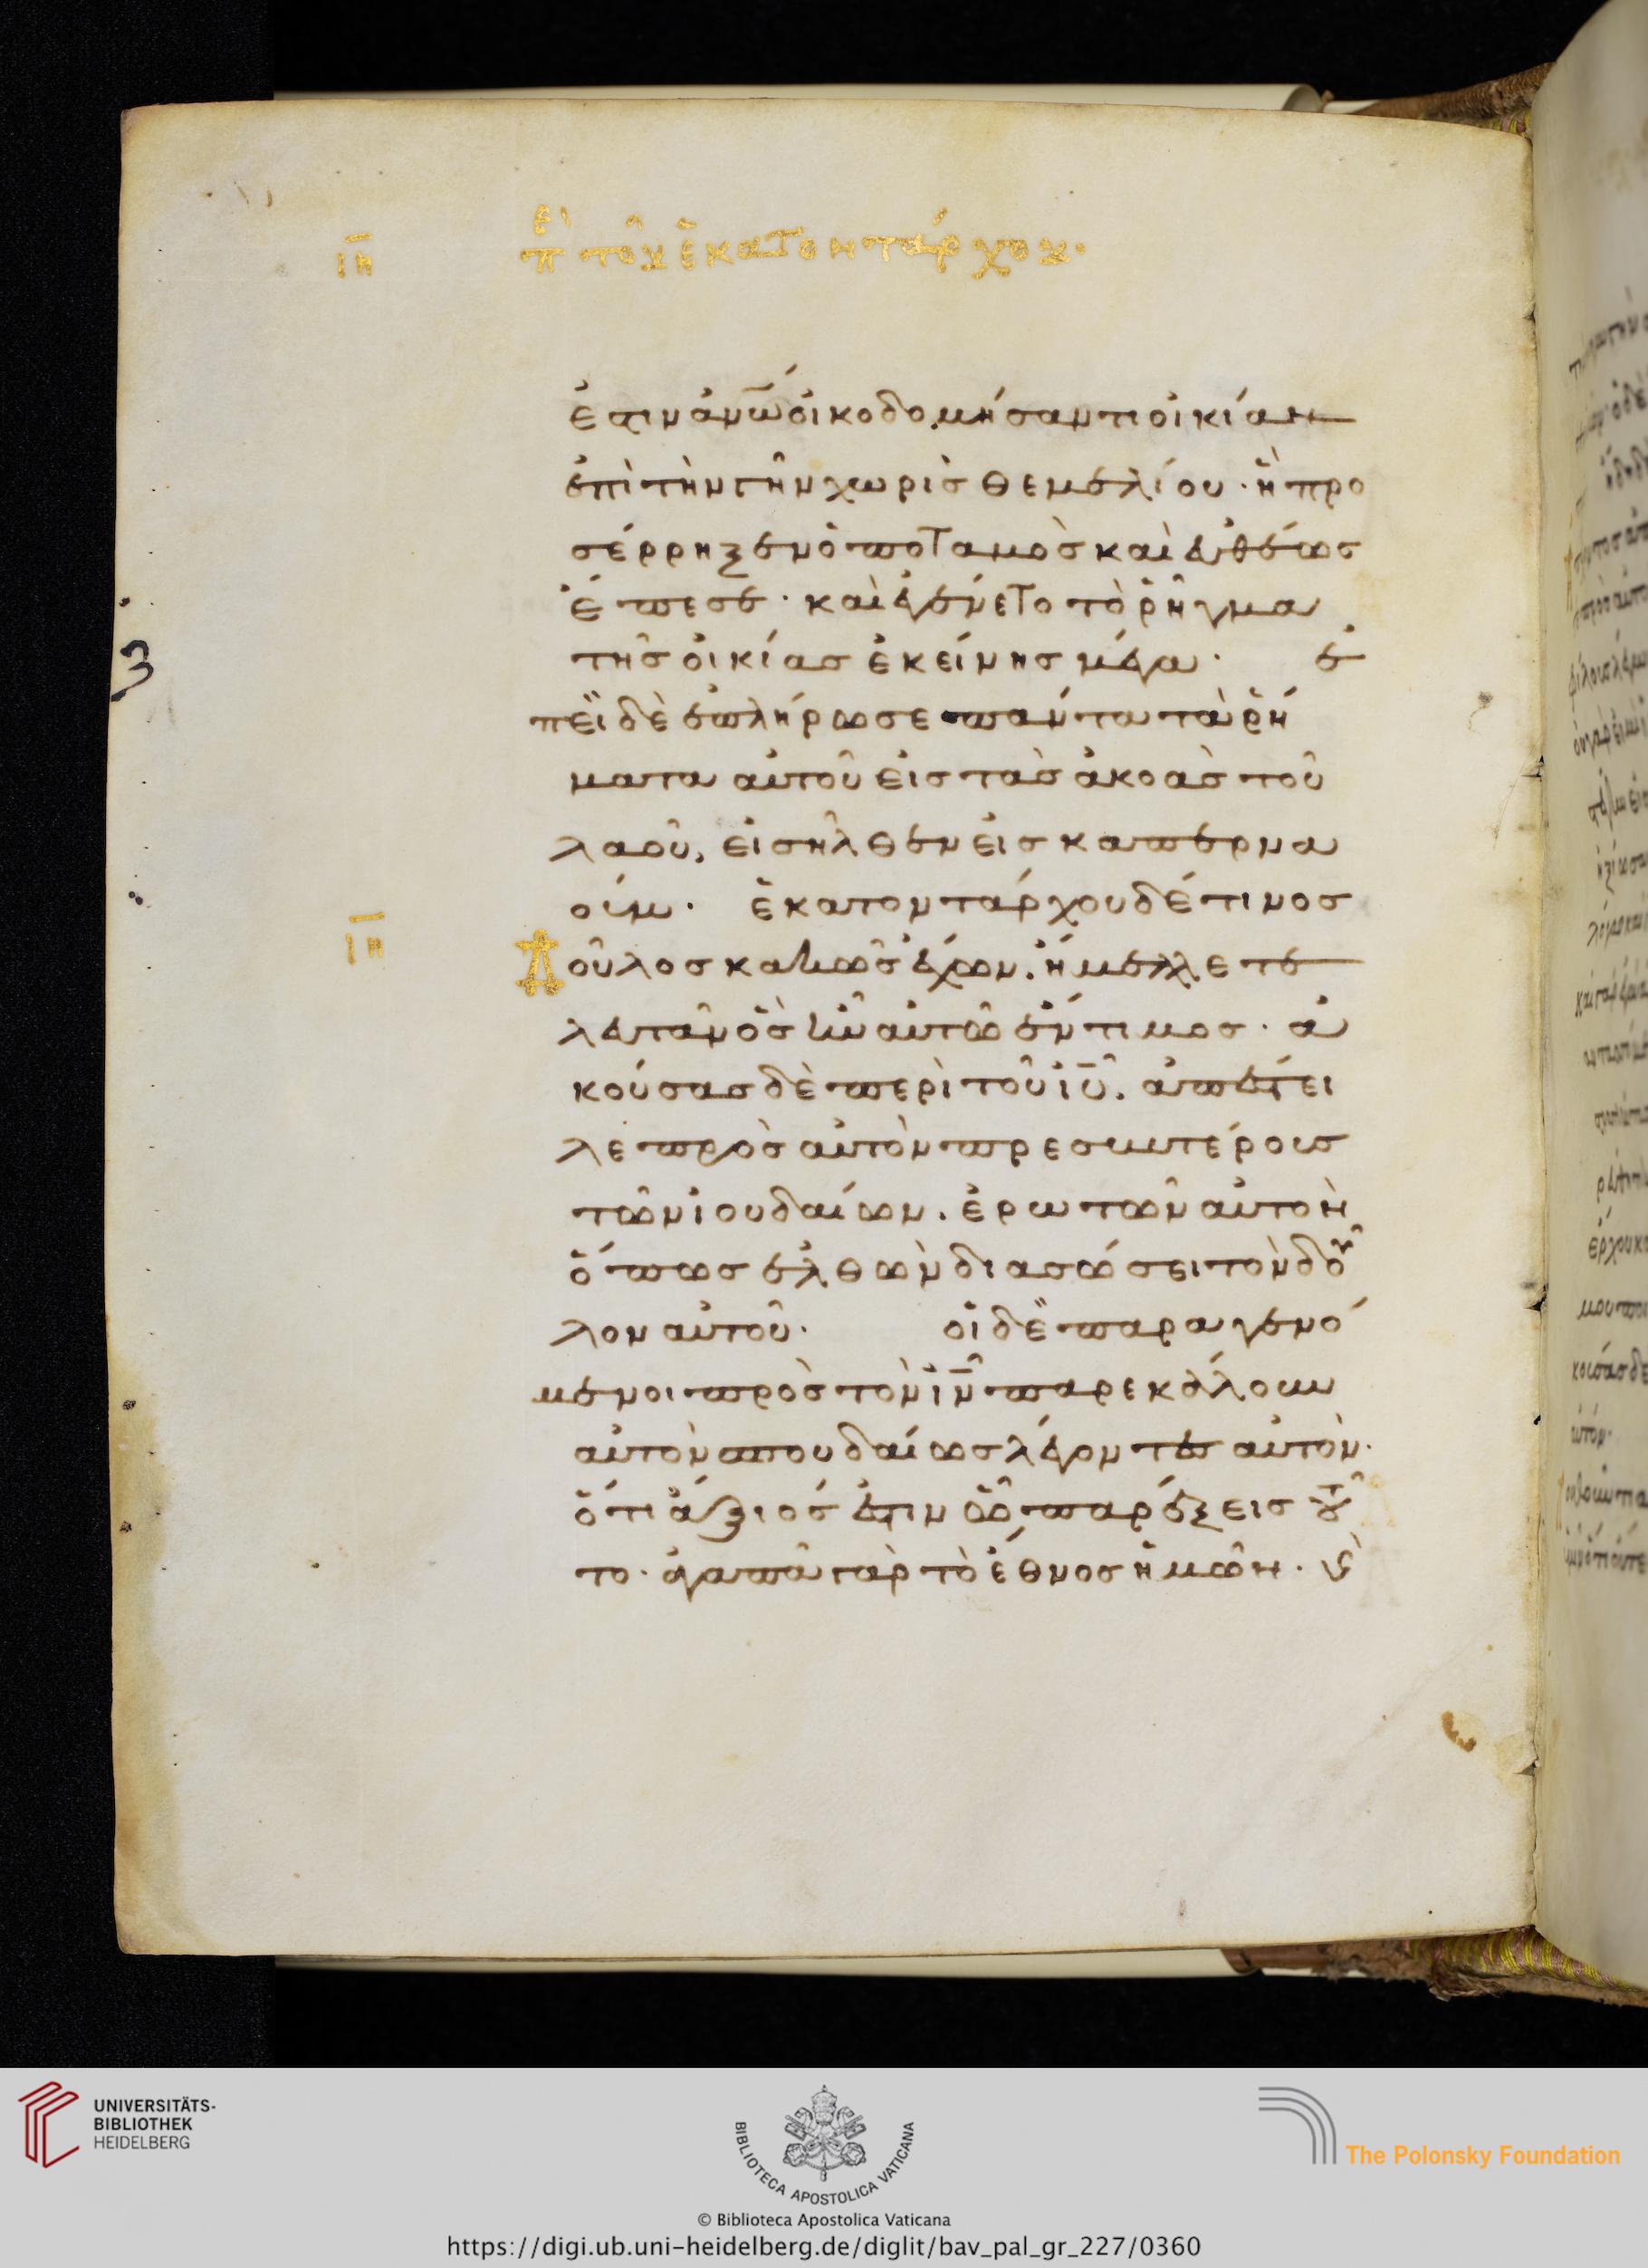 ιη πε τοῦ ἑκατοντάρχου·
ἐστιν ἀνῶ οἰκοδομήσαντι οἰκίαν
ἐπὶ τὴν γῆν χωρὶσ θεμελίου· ἧ προ
σέρρηξεν ὁ ποταμὸσ καὶ εὐθέωσ
ἔπεσε· καὶ ἐγένετο τὸ ῥῆγμα
τῆσ οἰκίασ ἐκείνησ μέγα· ἐ
πεῒ δὲ ἐπλήρωσε πάντα τὰ ῥή
ματα αὐτοῦ εἰσ τὰσ ἀκοὰσ τοῦ
λαοῦ, εἰσῆλθεν εἰσ καπερνα
ούμ· ἑκατοντάρχου δέ τινοσ
ιη δοῦλοσ κακῶσ ἔχων. ἤμελλε τε
λευτᾶν ὃσ ἦν αὐτῶ ἔντιμοσ· ἀ
κούσασ δὲ περὶ τοῦ ἰῦ. ἀπέστει
λε πρὸσ αὐτὸν πρεσβυτέρουσ
τῶν ἰουδαίων. ἐρωτῶν αὐτὸν
ὅπωσ ἐλθὼν διασώσει τὸν δοῦ
λον αὐτοῦ· οἱ δὲ παραγενό
μενοι πρὸσ τὸν ἰν παρεκάλουν
αὐτὸν σπουδαίωσ λέγοντεσ αὐτὸν·
ὅτι ἄξιόσ ἐστιν ὧ παρέξεισ τοῦ
το· ἀγαπᾶ γὰρ τὸ ἔθνοσ ἡμῶν· ϗ
3
UNIVERSITÄTS-
BIBLIOTHEK
HEIDELBERG
BIBLIOTECA APOSTOLICA VATICANA
The Polonsky Foundation
© Biblioteca Apostolica Vaticana
https://digi.ub.uni-heidelberg.de/diglit/bav_pal_gr_227/0360